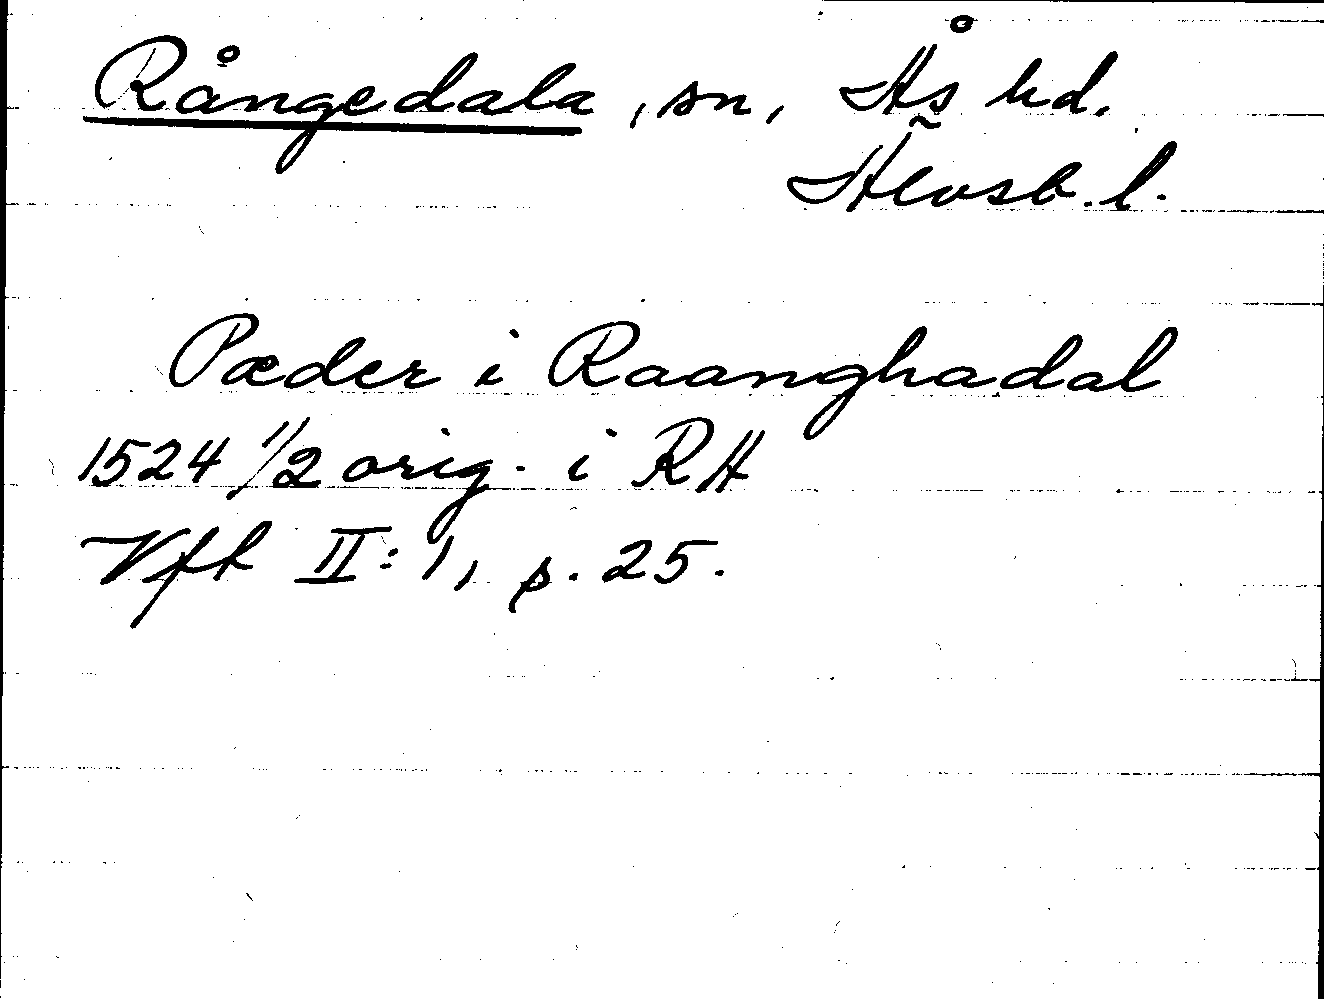 Rångedala, sn, Ås hd.
Älvsb. l.
Pæder i Raanghadal
1524 1/2 orig. i RH
Vfh II: 1, p. 25.